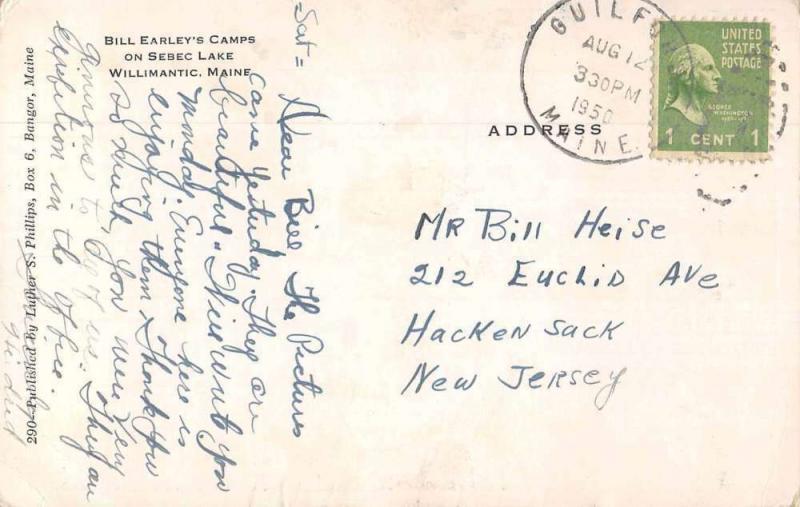 BILL EARLEY'S CAMPS
ON SEBEC LAKE
WILLIMANTIC, MAINE
290—Published by Luther S. Phillips, Box 6, Bangor, Maine
Sat =
Dear Bill The Pictures
came yesterday. They are
beautiful - I will write you
Monday. Everyone here is
enjoying them. Thank you
so much. You were very
to all of us. They are
in the office.
GUILFORD
AUG 12
330PM
1950
MAINE.
UNITED
STATES
POSTAGE
GEORGE
WASHINGTON
1 CENT 1
ADDRESS
MR Bill Heise
212 EUCLID AVE
HACKENSACK
NEW JERSEY